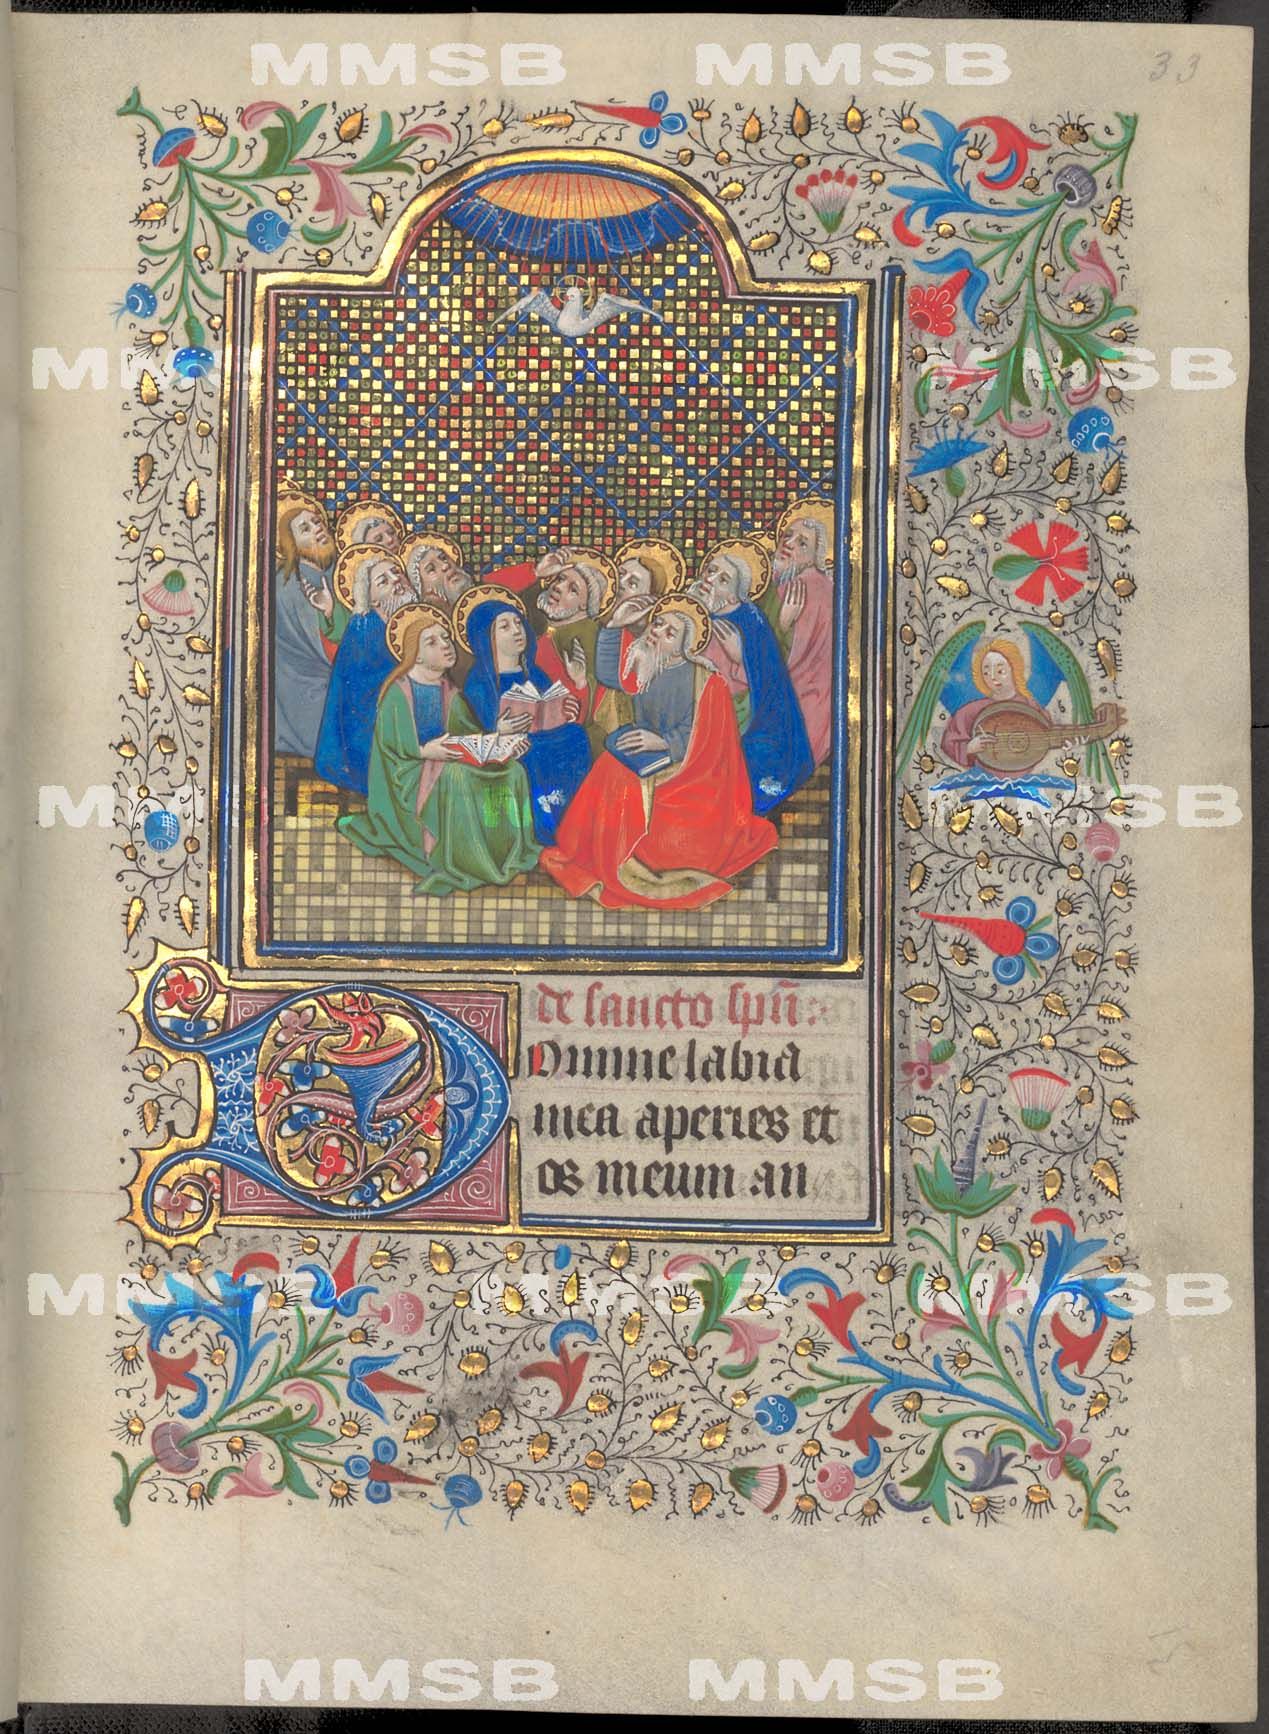 MMSB MMSB
33
MMSB MMSB
de sancto spu:
Domine labia
MMSB MMSB
mea aperies et
os meum an
MMSB MMSB MMSB
MMSB MMSB